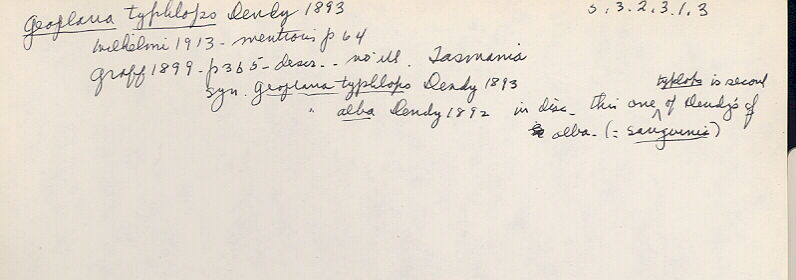 Geoplana typhlops Dendy 1893 5.3.2.3.1.3
Wilhelmi 1913 - mentions p 64
Graff 1899 - p 365 - descr. - no ill. Tasmania
Syn. Geoplana typhlops Dendy 1893
" alba Dendy 1892 in disc. this one typhlops is second of Dendy's of
alba. (= sanguinea)